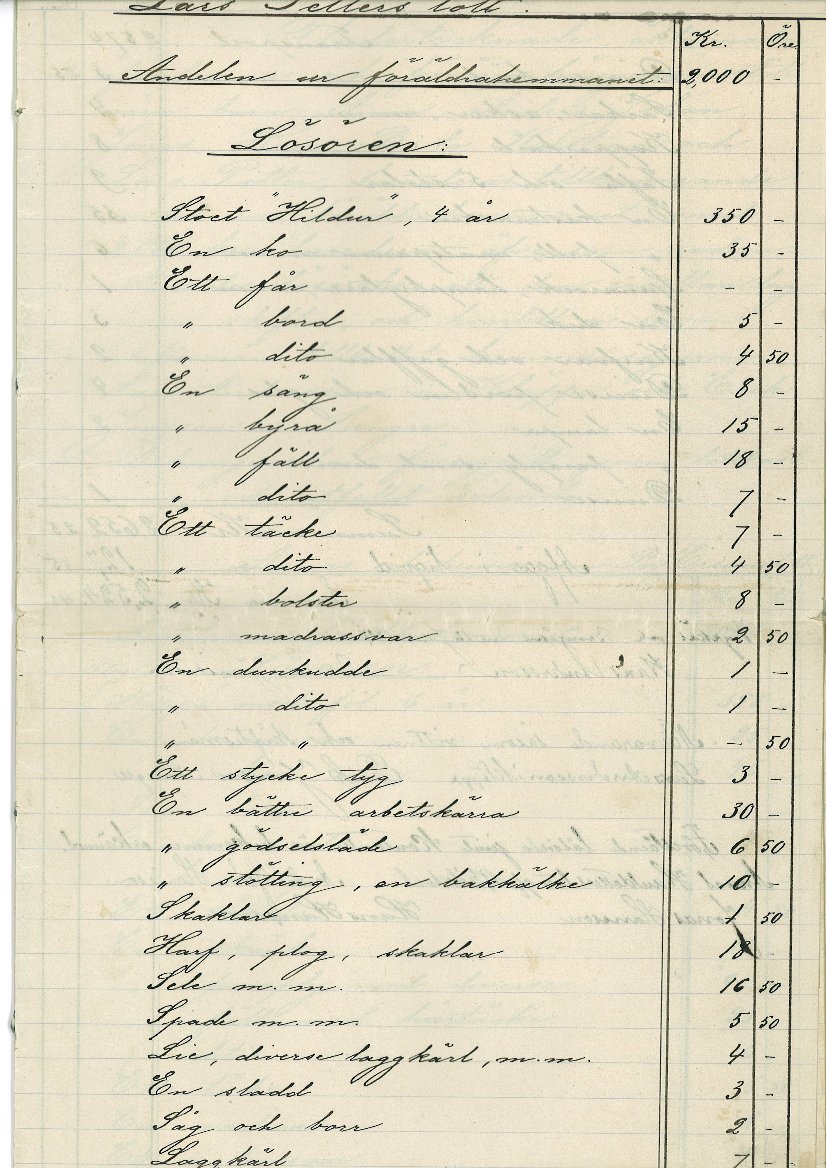 Lars Pellers lott.
Kr. Öre
Andelen ur föräldrahemmanet: 2,000 -
Lösören:
Stoet "Hildur", 4 år 350 -
En ko 35 -
Ett får - -
" bord 5 -
" dito 4 50
En säng 8 -
" byrå 15 -
" fäll 18 -
" dito 7 -
Ett täcke 7 -
" dito 4 50
" bolster 8 -
" madrassvar 2 50
En dunkudde 1 -
" dito 1 -
" " - 50
Ett stycke tyg 3 -
En bättre arbetskärra 30 -
" gödselsläde 6 50
" stötting, en bakkälke 10 -
Skaklar 1 50
Harf, plog, skaklar 18 -
Sele m. m. 16 50
Spade m. m. 5 50
Lie, diverse laggkärl, m. m. 4 -
En sladd 3 -
Såg och borr 2 -
Laggkärl 7 -